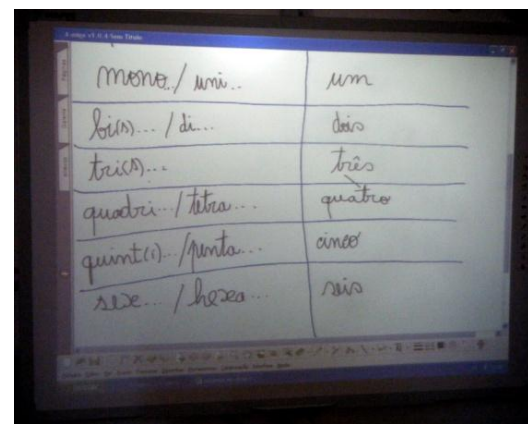 mono.. / uni.. um
bi(s)... / di... dois
tri(s)... três
quadri... / tetra... quatro
quint(i)... / penta... cinco
sexe... / hexa... seis